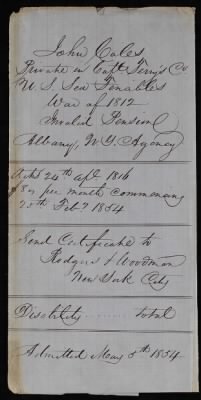 John Cales
Private in Capt Terry's Co
U. S. Sea Fencibles
War of 1812
Invalid Pension
Albany, N Y Agency
Act 24th apl 1816
$8 00 per month commencing
20th Feby 1854
Send Certificate to
Rodgers & Woodman
New York City
Disability total
Admitted May 5th 1854